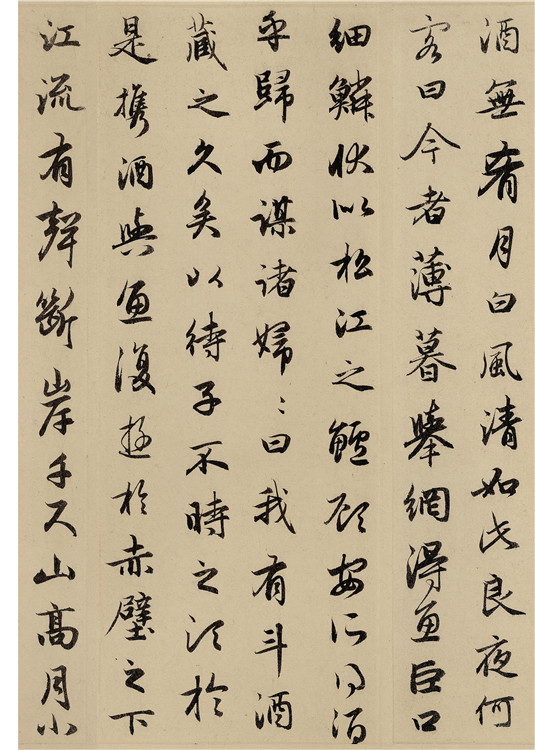 酒無肴月白風清如此良夜何
客曰今者薄暮舉網得魚巨口
細鱗狀似松江之鱸顧安所得酒
乎歸而謀諸婦〻曰我有斗酒
藏之久矣以待子不時之須於
是攜酒與魚復遊於赤壁之下
江流有聲斷岸千尺山高月小